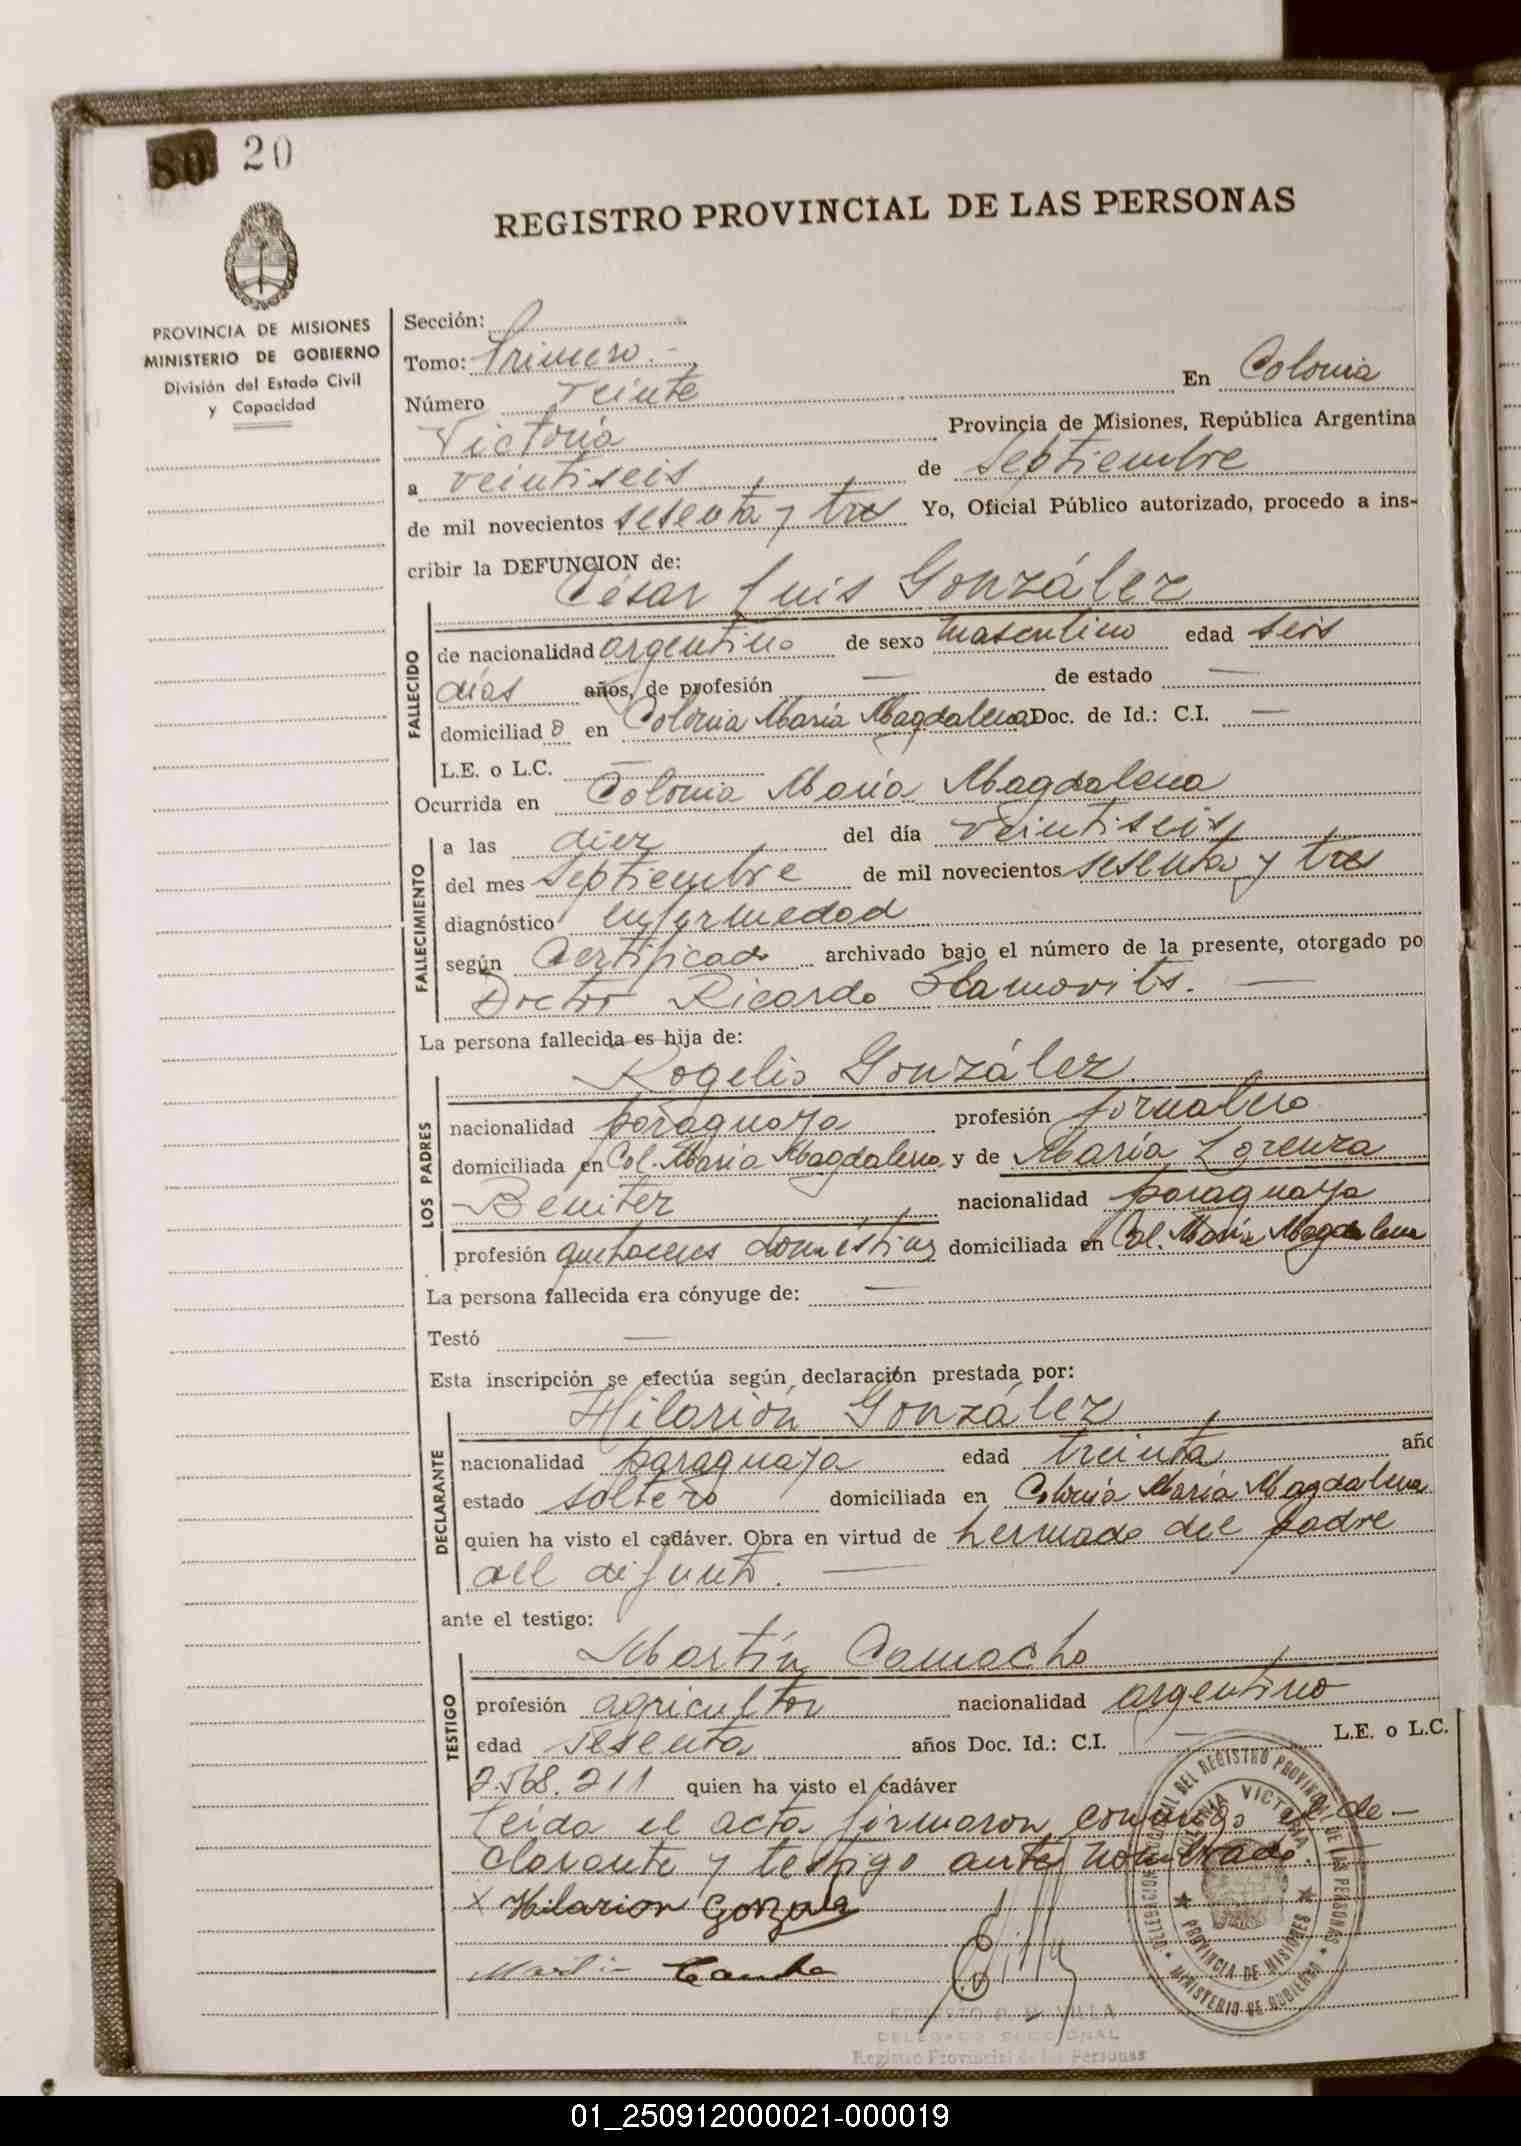 80 20
REGISTRO PROVINCIAL DE LAS PERSONAS
PROVINCIA DE MISIONES
MINISTERIO DE GOBIERNO
División del Estado Civil
y Capacidad
Sección:
Tomo: Primero.-
Número veinte En Colonia
Victoria Provincia de Misiones, República Argentina
a veintiseis de Septiembre
de mil novecientos sesenta y tres Yo, Oficial Público autorizado, procedo a ins-
cribir la DEFUNCION de:
César Luis González
FALLECIDO
de nacionalidad argentino de sexo masculino edad seis
días años, de profesión — de estado —
domiciliado en Colonia María Magdalena Doc. de Id.: C.I. —
L.E. o L.C. —
Ocurrida en Colonia María Magdalena
FALLECIMIENTO
a las diez del día veintiseis
del mes Septiembre de mil novecientos sesenta y tres
diagnóstico enfermedad
según Certificado archivado bajo el número de la presente, otorgado po
Doctor Ricardo Stamovits. —
La persona fallecida es hija de:
Rogelio González
LOS PADRES
nacionalidad paraguaya profesión jornalero
domiciliada en Col. María Magdalena y de María Lorenza
Benitez nacionalidad paraguaya
profesión quehaceres domésticos domiciliada en Col. María Magdalena
La persona fallecida era cónyuge de: —
Testó —
Esta inscripción se efectúa según declaración prestada por:
Hilarión González
DECLARANTE
nacionalidad paraguaya edad treinta año
estado soltero domiciliada en Colonia María Magdalena
quien ha visto el cadáver. Obra en virtud de hermado del padre
del difunto. —
ante el testigo:
Martín Camacho
TESTIGO
profesión agricultor nacionalidad argentino
edad sesenta años Doc. Id.: C.I. — L.E. o L.C.
2.568.211 quien ha visto el cadáver
Leída el acta firmaron conmigo el de-
clarante y testigo ante nombrado.
x Hilarion Gonzalez
DELEGACION SECCIONAL DEL REGISTRO PROVINCIAL DE LAS PERSONAS
COLONIA VICTORIA
PROVINCIA DE MISIONES
MINISTERIO DE GOBIERNO
DELEGADO SECCIONAL
Registro Provincial de las Personas
01_250912000021-000019